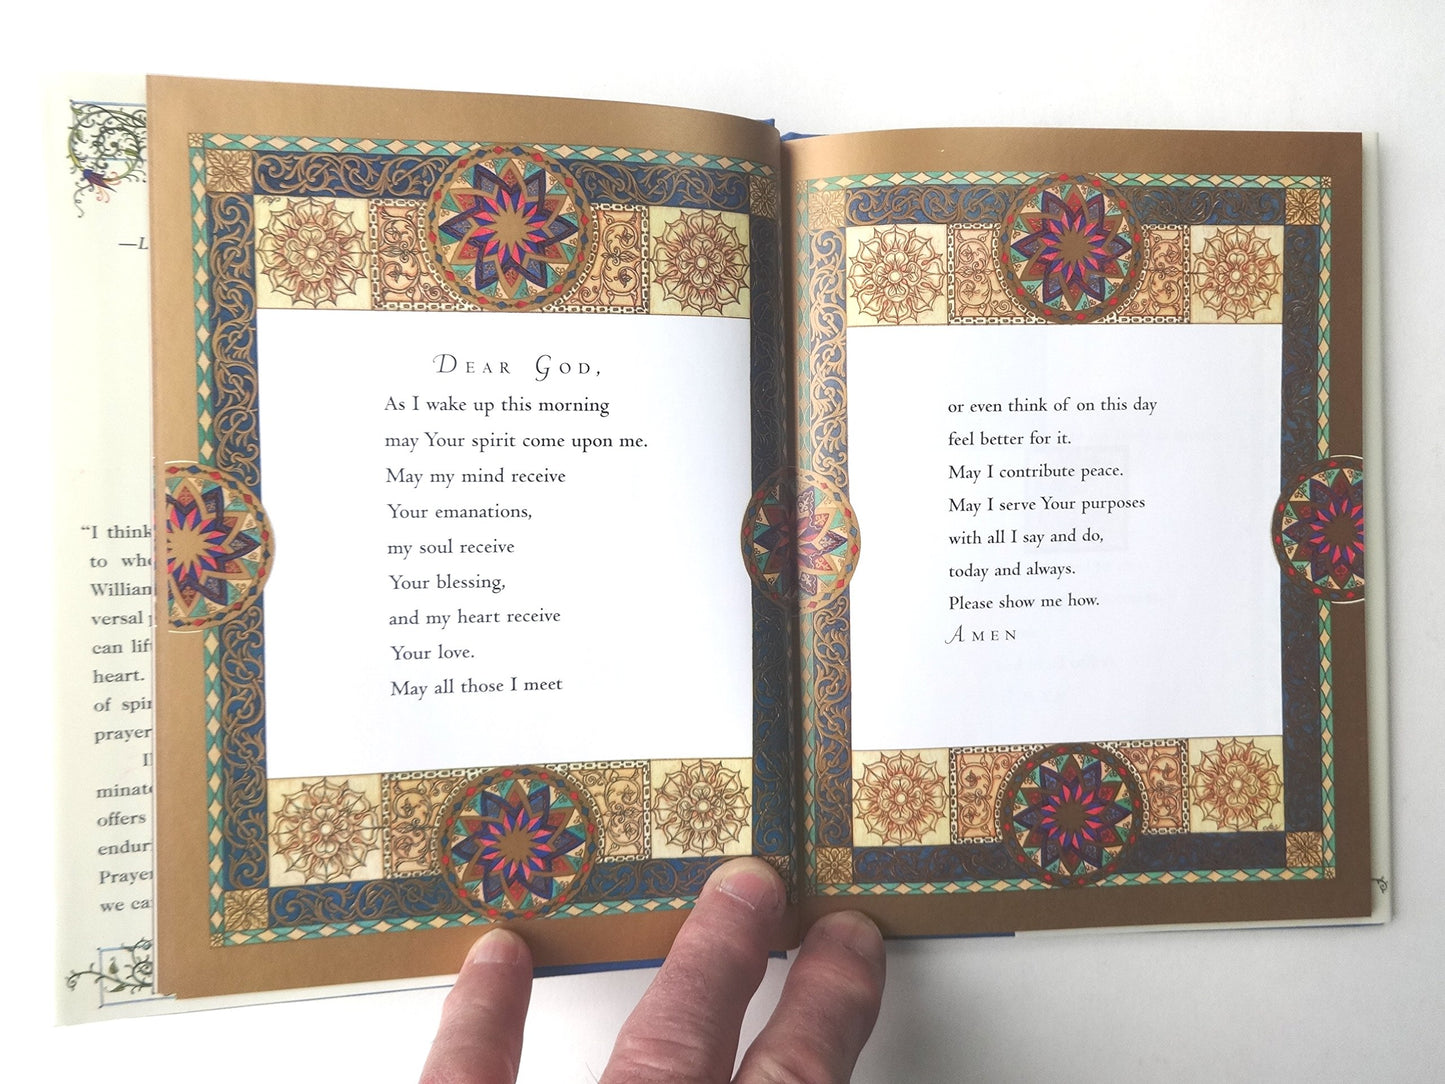 —L
"I think
to who
William
versal
can lif
heart.
of spir
prayer
minate
offers
endur
Prayer
we ca
DEAR GOD,
As I wake up this morning
may Your spirit come upon me.
May my mind receive
Your emanations,
my soul receive
Your blessing,
and my heart receive
Your love.
May all those I meet
or even think of on this day
feel better for it.
May I contribute peace.
May I serve Your purposes
with all I say and do,
today and always.
Please show me how.
AMEN